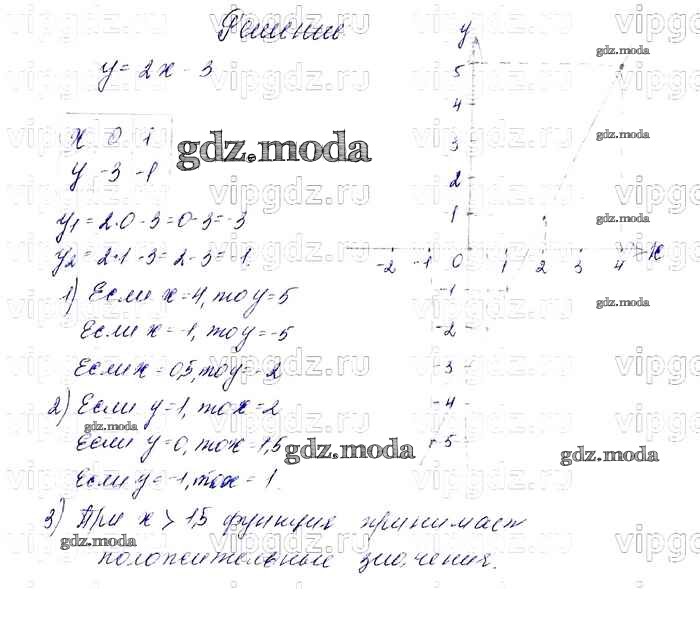 Решение
y = 2x - 3
x 0 1
y -3 -1
y₁ = 2·0 - 3 = 0 - 3 = -3
y₂ = 2·1 - 3 = 2 - 3 = -1.
1) Если x = 4, то y = 5
Если x = -1, то y = -5
Если x = 0,5, то y = -2
2) Если y = 1, то x = 2
Если y = 0, то x = 1,5
Если y = -1, то x = 1.
3) При x > 1,5 функция принимает
положительные значения.
y
5
4
3
2
1
-2 -1 0 1 2 3 4 x
-1
-2
-3
-4
-5
gdz.moda
gdz.moda
gdz.moda
gdz.moda
gdz.moda
gdz.moda
gdz.moda
gdz.moda
gdz.moda
vipgdz.ru